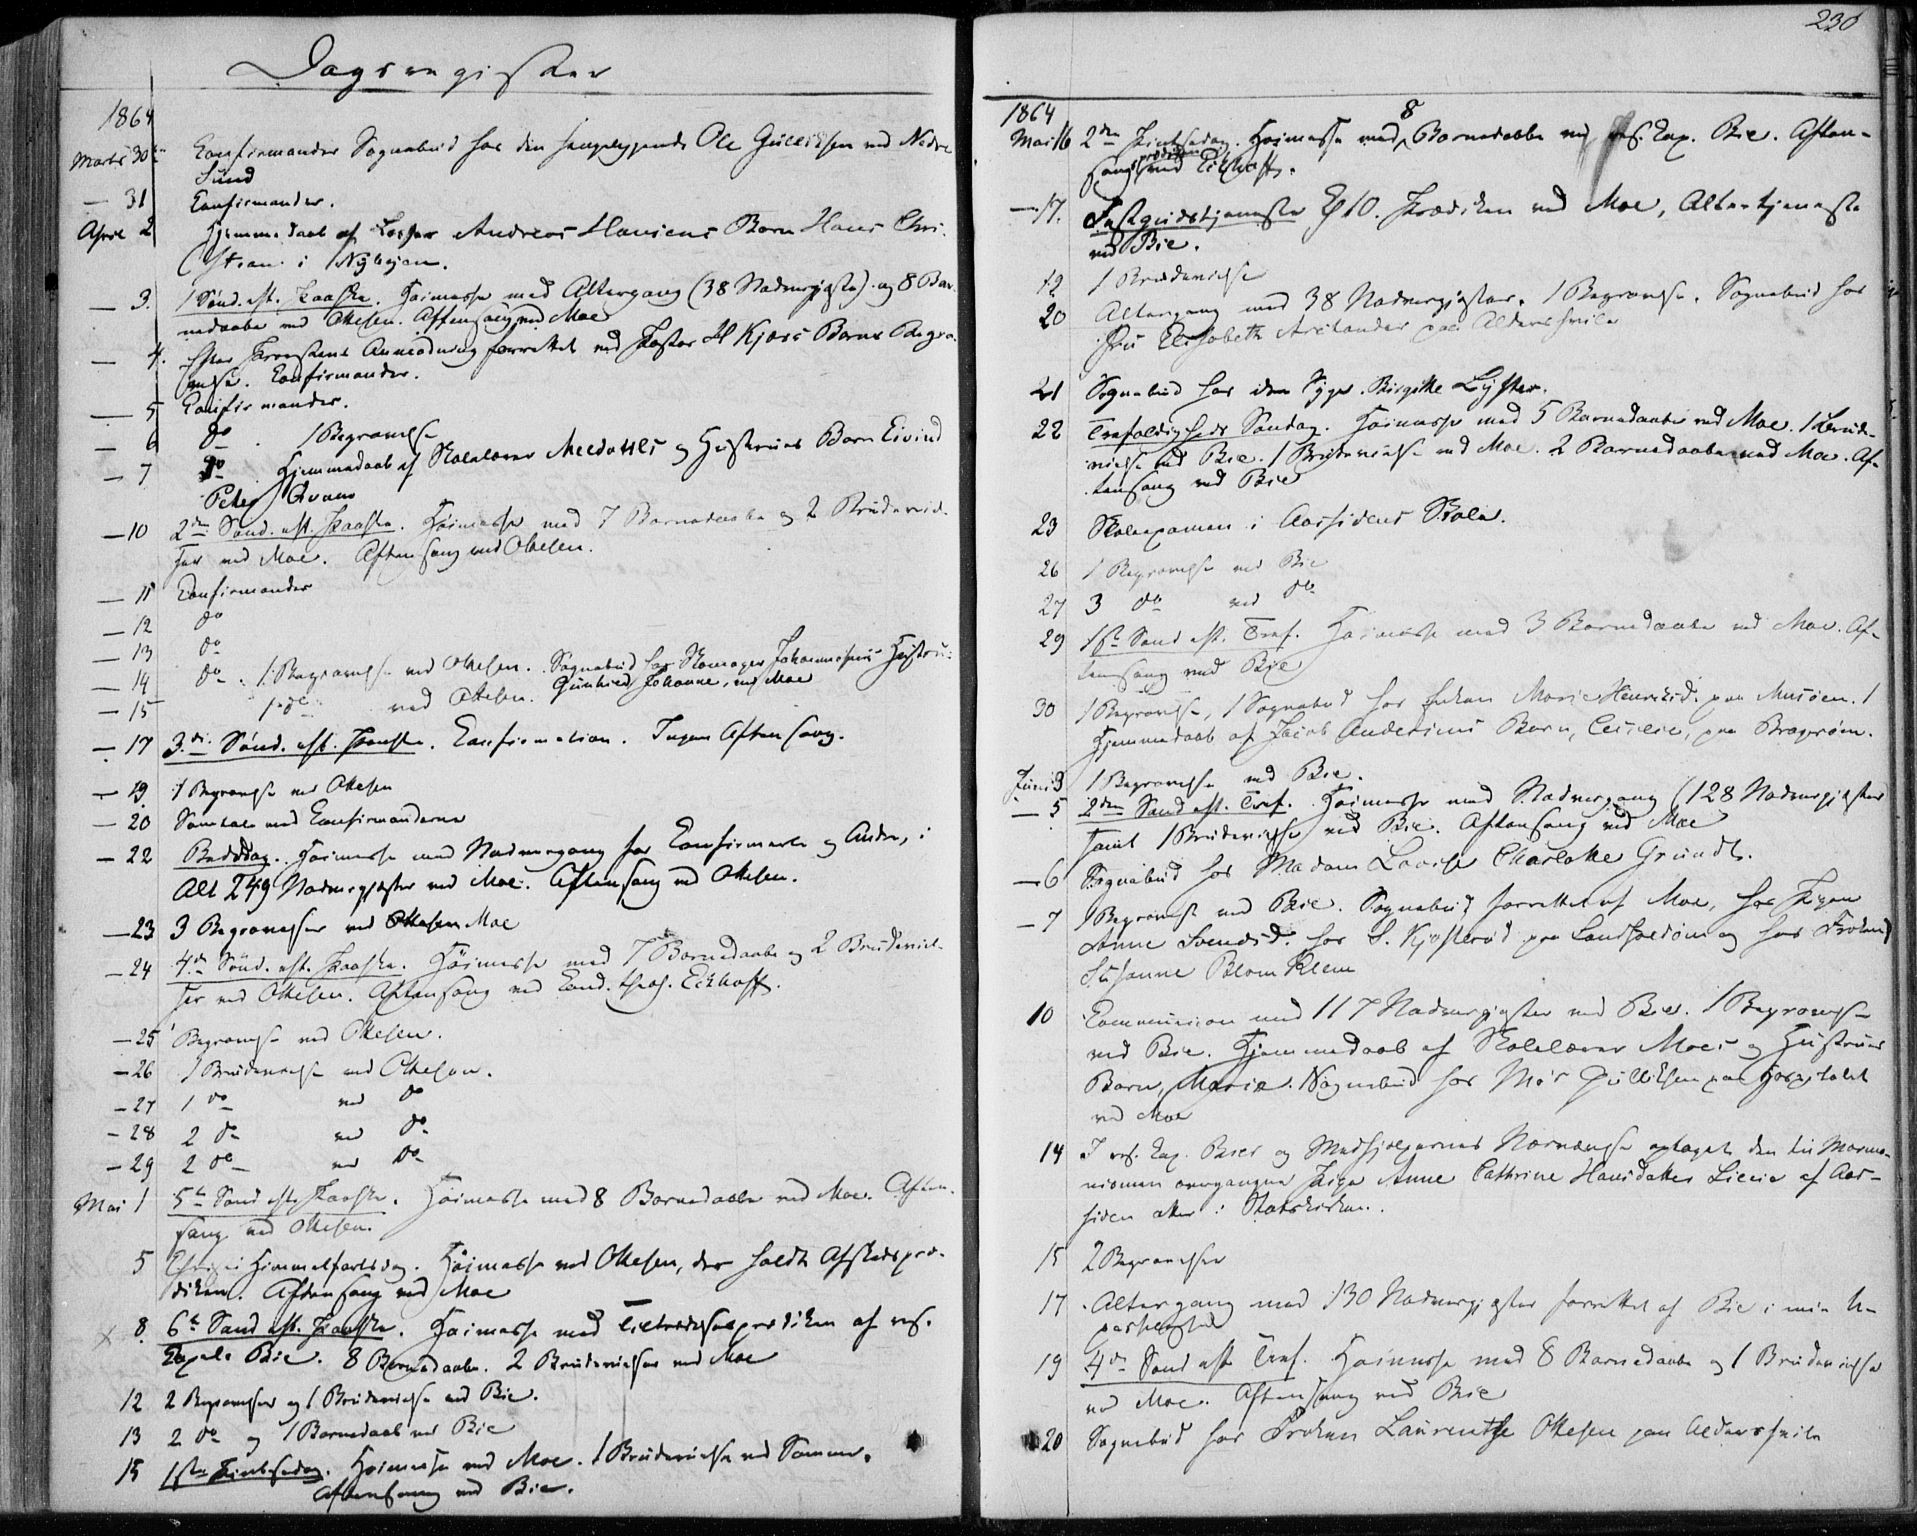 Dagsregister
1864
Marts 30te Confirmander Sognebud hos den sengeliggende Ole Gulliksen ved Nedre
Sund
— 31 Confirmander.
April 2 Hjemmedaab af Andreas Hansens Barn Hans Chri-
stian i Nybyen.
— 3. 1 Sønd. eft. Paaske. Høimesse med Altergang (38 Nadvergjæster) og 8 Bar-
nedaabe ved Ottesen. Aftensang ved Moe
— 4. Efter Provstens Anmodning forrettet ved Pastor Kjærs Barns Begra-
velse. Confirmander.
— 5 Confirmander.
— 6 do. 1 Begravelse
— 7 do Hjemmedaab af Skolelærer Meedalls og Hustrues Barn Eivind
Peter
— 10 2den Sønd. eft. Paaske. Høimesse med 7 Barnedaabe og 2 Brudeviel-
ser ved Moe. Aftensang ved Ottesen.
— 11 Confirmander
— 12 do
— 13 do
— 14 do. 1 Begravelse ved Ottesen. Sognebud hos Skomager Johannesens Hustru:
— 15 1 do ved Ottesen. Gunhild Johanne, ved Moe
— 17 3die Sønd. eft. Paaske. Confirmation. Ingen Aftensang.
— 19 1 Begravelse ved Ottesen
— 20 Samtale med Confirmanderne
— 22 Bededag. Høimesse med Nadvergang for Confirmerte og Andre, i
Alt 249 Nadvergjæster ved Moe. Aftensang ved Ottesen.
— 23 3 Begravelser ved Ottesen Moe
— 24 4de Sønd. eft. Paaske. Høimesse med 7 Barnedaabe og 2 Brudeviel-
ser ved Ottesen. Aftensang ved Cand. theol. Eckhoff.
— 25 Begravelse ved Ottesen.
— 26 1 Brudevielse ved Ottesen.
— 27 1 do ved do
— 28 2 do ved do
— 29 2 do ved do
Mai 1 5te Sønd. eft. Paaske. Høimesse med 8 Barnedaabe ved Moe. Aften-
sang ved Ottesen.
5 Christi Himmelfartsdag. Høimesse ved Ottesen, der holdt Afskedspræ-
diken. Aftensang ved Moe
x 8. 6te Sønd. eft. Paaske. Høimesse med Tiltrædelsesprædiken af res.
Capel. Bie. 8 Barnedaabe. 2 Brudevielser ved Moe
12 2 Begravelser og 1 Brudevielse ved Bie.
13 2 do og 1 Barnedaab ved Bie
15 1ste Pintsedag. Høimesse ved Moe. 1 Brudevielse ved Samme.
Aftensang ved Bie.
230
1864
Mai 16 2den Pintsedag. Høimesse med 8 Barnedaabe ved res. Cap. Bie. Aften-
sangsprædiken ved Eckhoff.
— 17. Festgudstjeneste Kl 10. Prædiken ved Moe, Altertjeneste
ved Bie.
19 1 Brudevielse
20 Altergang med 38 Nadvergjæster. 1 Begravelse. Sognebud hos
Fru Elisabeth paa Aldershvile
21 Sognebud hos den syge Birgitte Lyster.
22 Trefoldigheds Søndag. Høimesse med 5 Barnedaabe ved Moe. 1 Brude-
vielse ved Bie. 1 Brudevielse ved Moe. 2 Barnedaabe ved Moe. Af-
tensang ved Bie
23 Skoleexamen i Aassidens Skole.
26 1 Begravelse ved Bie
27 3 do ved do
29 1ste Sønd eft. Tref. Høimesse med 3 Barnedaabe ved Moe. Af-
tensang ved Bie
30 1 Begravelse, 1 Sognebud hos Enken Marie Henriksd. paa Musøen. 1
Hjemmedaab af Jacob Andersens Barn, Cecilie, paa Bragerøen.
Juni 3 1 Begravelse ved Bie.
— 5 2den Sønd eft. Tref. Høimesse med Nadvergang (128 Nadvergjæster
samt 1 Brudevielse ved Bie. Aftensang ved Moe
— 6 Sognebud hos Madam Lovise Charlotte Grundt.
— 7 1 Begravelse ved Bie. Sognebud forrettet af Moe, hos Pigen
Anne Svendsd. hos S. Kjøsterød paa Landfaldøen og hos Frøken
Susanne Blom Klem
10 Communion med 117 Nadvergjæster ved Bie. 1 Begravelse
ved Bie. Hjemmedaab af Skolelærer Moes og Hustrues
Barn, Marie. Sognebud hos Mor Gulliksen paa Hospitalet
ved Moe
14 I res. Cap. Bies og Medhjelpernes Nærværelse optaget den til Mormo-
nismen overgangne Pige Anne Cathrine Hansdatter Lierie af Aas-
siden atter i Statskirken.
15 2 Begravelser
17. Altergang med 130 Nadvergjæster forrettet af Bie i min U-
passelighed
19 4de Sønd eft Tref. Høimesse med 8 Barnedaabe og 1 Brudevielse
ved Moe. Aftensang ved Bie
20 Sognebud hos Frøken Laurentse Ottesen paa Aldershvile